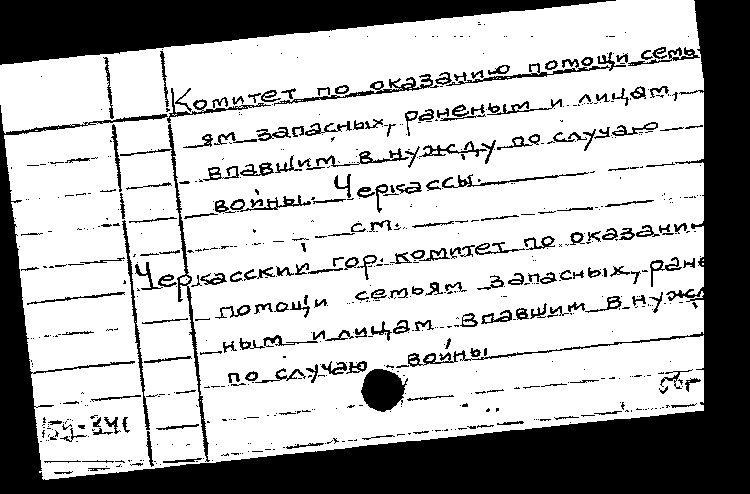 Комитет по оказанию помощи семь-
ям запасных, раненым и лицам,
впавшим в нужду по случаю
войны. Черкассы.
см.
Черкасский гор. комитет по оказанию
помощи семьям запасных, ране
ным и лицам впавшим в нужд
по случаю войны
59-341